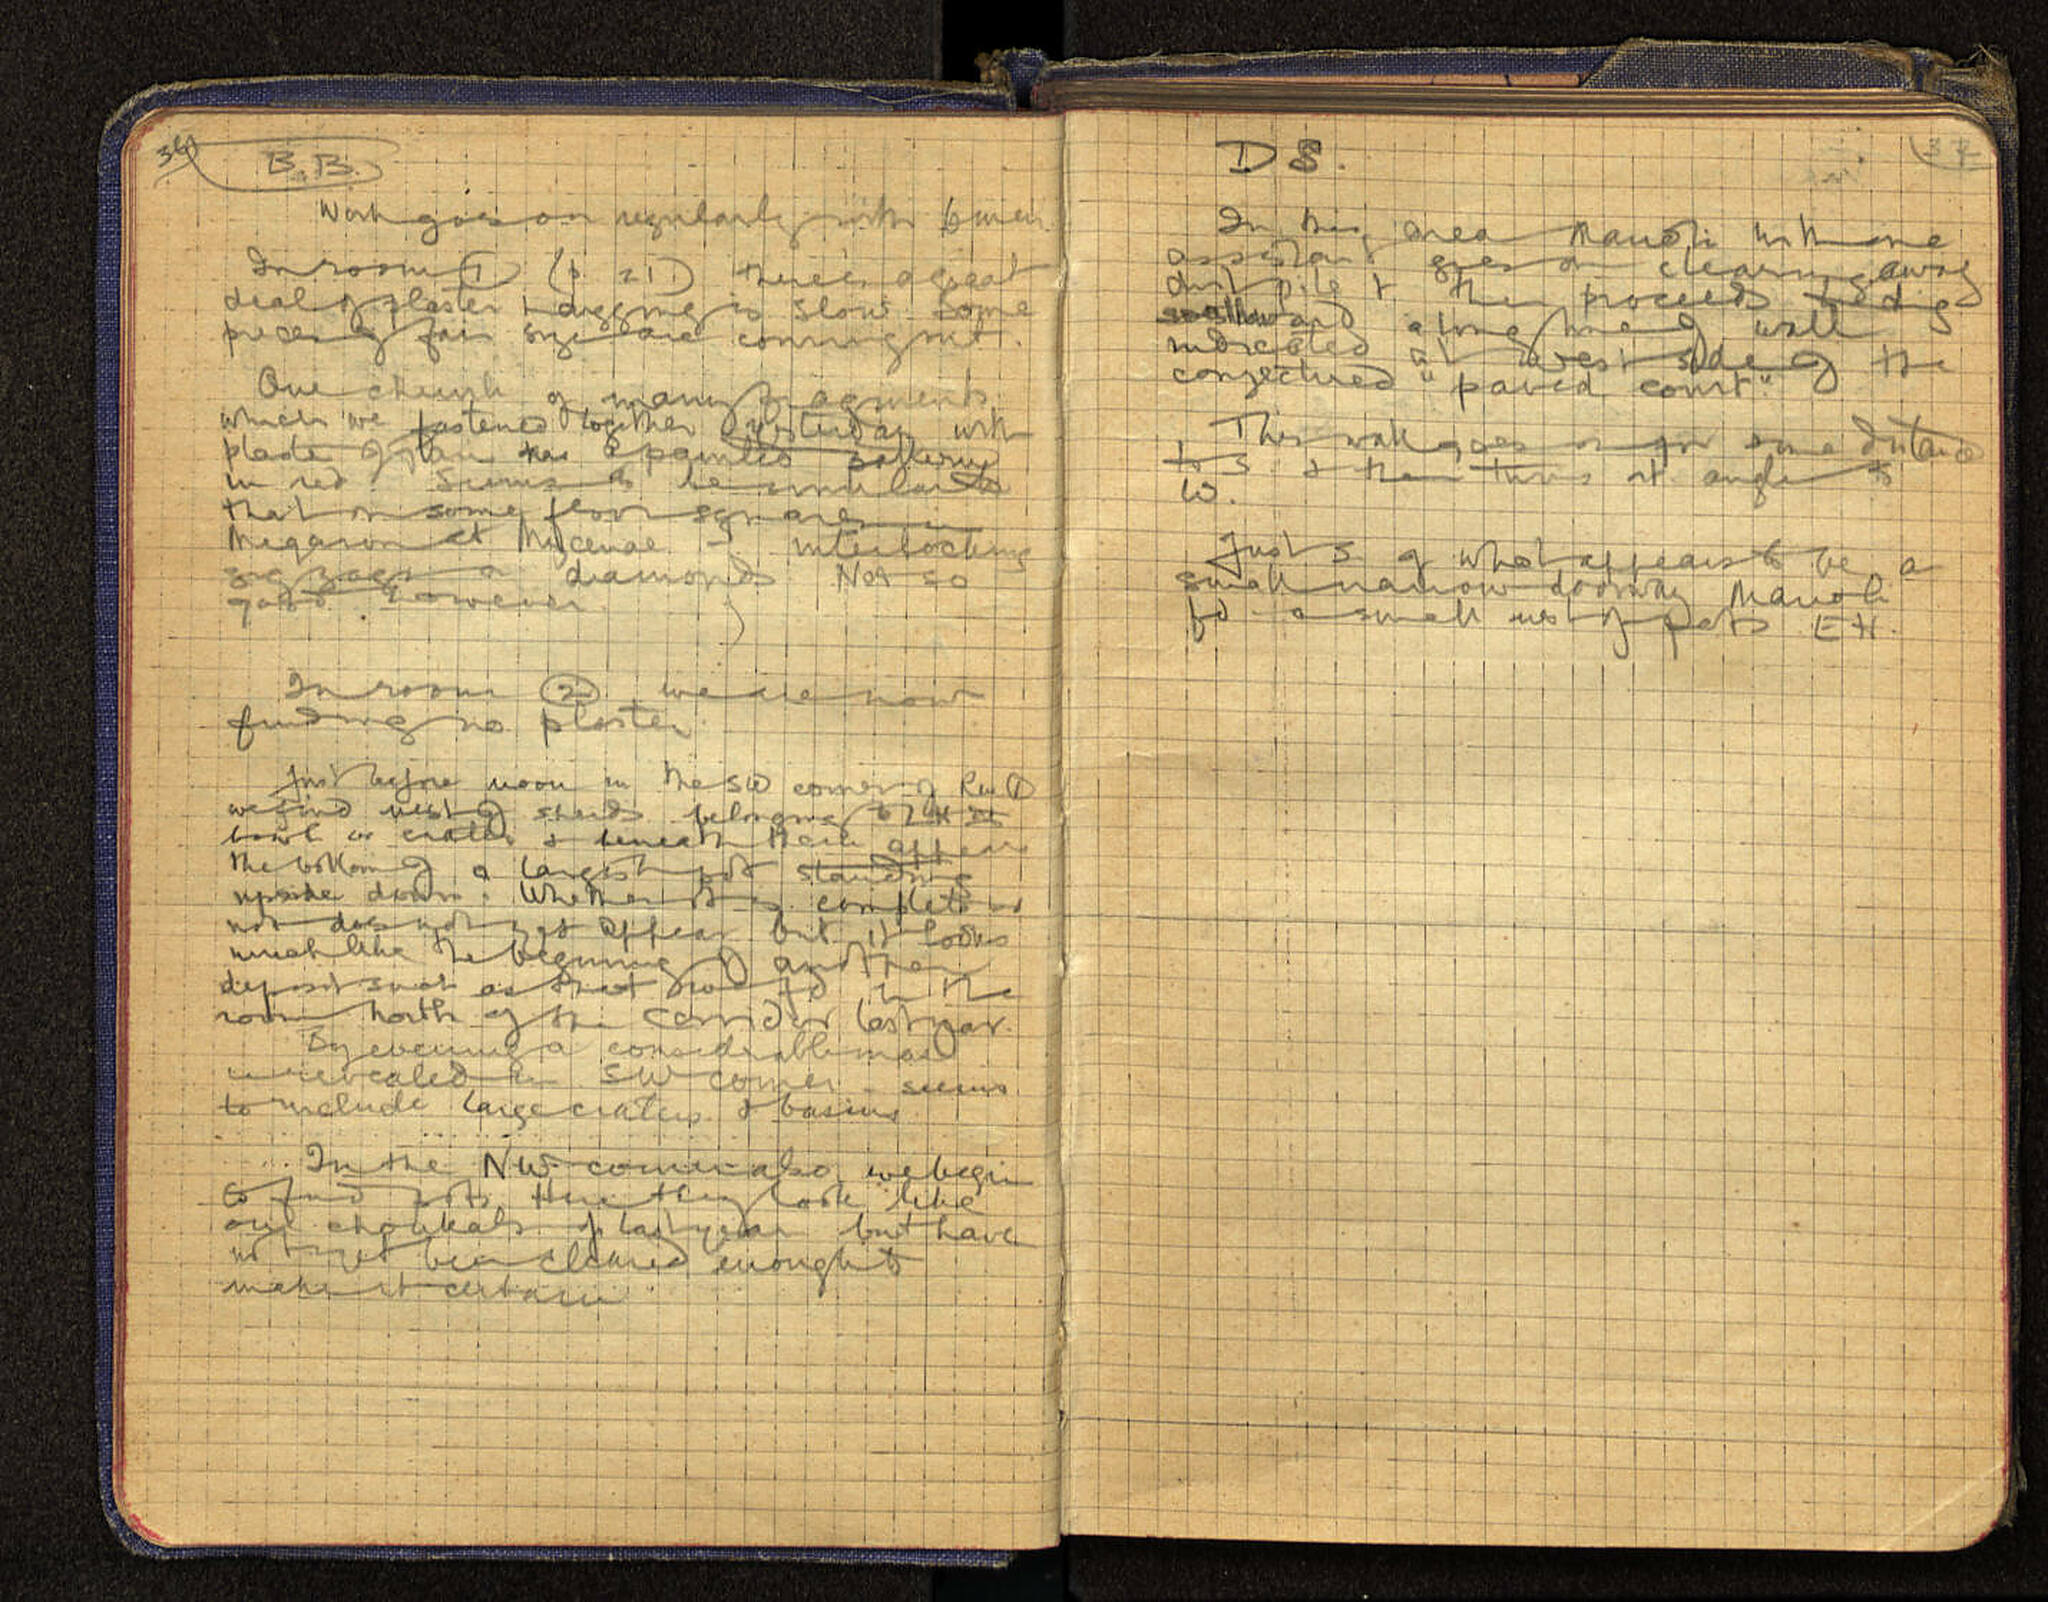 36
B.B.
Work goes on regularly with 6 men
In room 1 (p. 21) there is a great
deal of plaster & digging is slow. Some
pieces of fair size are coming out.
One chunk of many fragments
which we fastened together yesterday with
plaster of paris has a painted pattern
in red. Seems to be similar to
that on some floor squares in
Megaron at Mycenae - interlocking
zig zags or diamonds Not so
good however.
In room 2 we are now
finding no plaster.
Just before noon in the SW corner of Rm 1
we find nest of sherds belonging to LH III
bowl or crater & beneath there appears
the bottom of a largish pot standing
upside down. Whether it is complete or
not does not yet appear but it looks
much like the beginning of another
deposit such as that we fd in the
room North of the Corridor last year.
By evening a considerable mass
is revealed in SW corner - seems
to include large craters & basins
In the NW corner also we begin
to find pots. Here they look like
our choukals of last year but have
not yet been cleared enough to
make it certain
37
DS.
In this area Manoli with one
assistant goes on clearing away
dirt pile & then proceeds
southward along line of wall
indicated at west side of the
conjectured "paved court".
This wall goes on for some distance
to S & then turns at angle to
W.
Just S of what appears to be a
small narrow doorway Manoli
fd a small nest of pots EH.